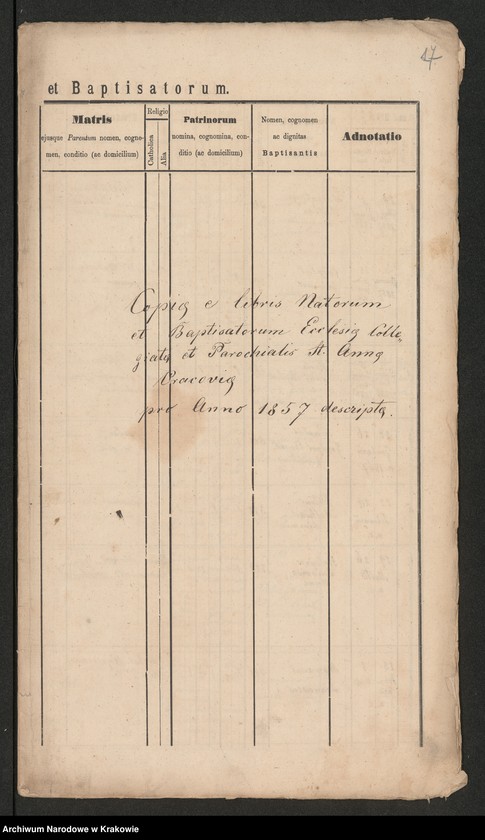 47
et Baptisatorum.
Matris
ejusque Parentum nomen, cogno-
men, conditio (ac domicilium)
Religio
Catholica
Alia
Patrinorum
nomina, cognomina, con-
ditio (ac domicilium)
Nomen, cognomen
ac dignitas
Baptisantis
Adnotatio
Copia e libris Natorum
et Baptisatorum Ecclesia Colle-
giata et Parochialis St. Anna
Cracovia
pro Anno 1857 descripta.
Archiwum Narodowe w Krakowie